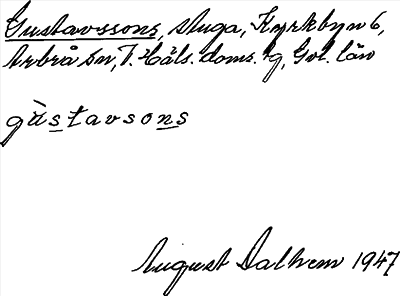 Gustavssons, stuga, Kyrkbyn 6,
Arbrå sn, V. Häls. doms. tg, Gvl. län
gùstavsons
August Dalhem 1947